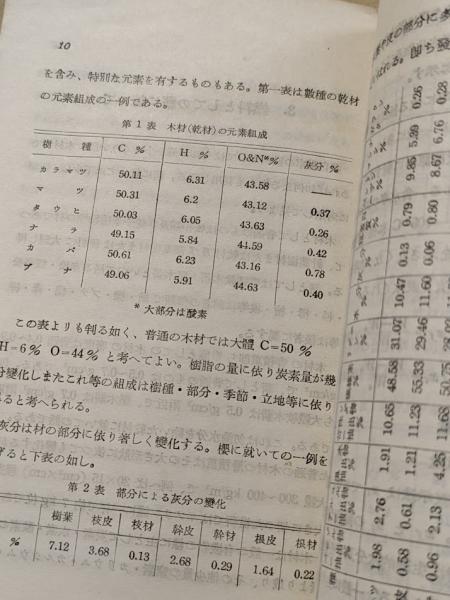 10
を含み、特別な元素を有するものもある。第一表は數種の乾材
の元素組成の一例である。
第 1 表 木材(乾材)の元素組成
樹 種 C % H % O&N*% 灰分 %
カラマツ 50.11 6.31 43.58 —
マツ 50.31 6.2 43.12 0.37
タウヒ 50.03 6.05 43.63 0.26
ナラ 49.15 5.84 44.59 0.42
カバ 50.61 6.23 43.16 0.78
ブナ 49.06 5.91 44.63 0.40
* 大部分は酸素
この表よりも判る如く、普通の木材では大體 C=50 %
H=6% O=44% と考へてよい。樹脂の量に依り炭素量が幾
分變化しまたこれ等の組成は樹種・部分・季節・立地等に依り
ると考へられる。
灰分は材の部分に依り著しく變化する。櫻に就いての一例を
ると下表の如し。
第 2 表 部分による灰分の變化
樹葉 枝皮 枝材 幹皮 幹材 根皮 根材
% 7.12 3.68 0.13 2.68 0.29 1.64 0.22
の部分に
% 0.26 0.28
% 5.39 6.76
% 9.85 8.67
% 0.79 0.80
% 0.13 0.06
% 10.47 11.60
% 31.07 29.46
% 48.58 55.33 50.75
抽出物% 10.65 11.23 11.68
抽出物% 1.91 1.21 4.25
抽出物% 2.76 0.61 2.13
抽出物% 1.98 0.58 0.96